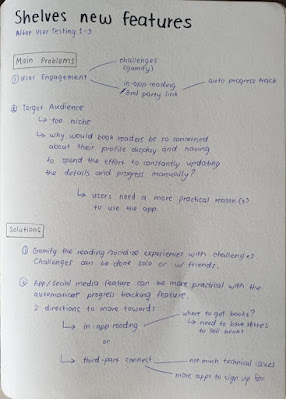 Shelves new features
After User Testing 1-3
Main Problems
① User Engagement
challenges
(gamify)
in-app reading
3rd party link
auto progress track
② Target Audience
↳ too niche
↳ why would book readers be so concerned
about their profile display and having
to spend the effort to constantly updating
the details and progress manually?
↳ users need a more practical reason(s)
to use the app.
Solutions
① Gamify the reading/socialize experience with challenges
Challenges can be done solo or w/ friends.
② App/social media feature can be more practical with the
automatic progress tracking feature
2 directions to move towards:
↳ in-app reading
where to get books?
↳ need to have stores
to sell books
or
↳ third-part connect
not much technical issues
more apps to sign up for